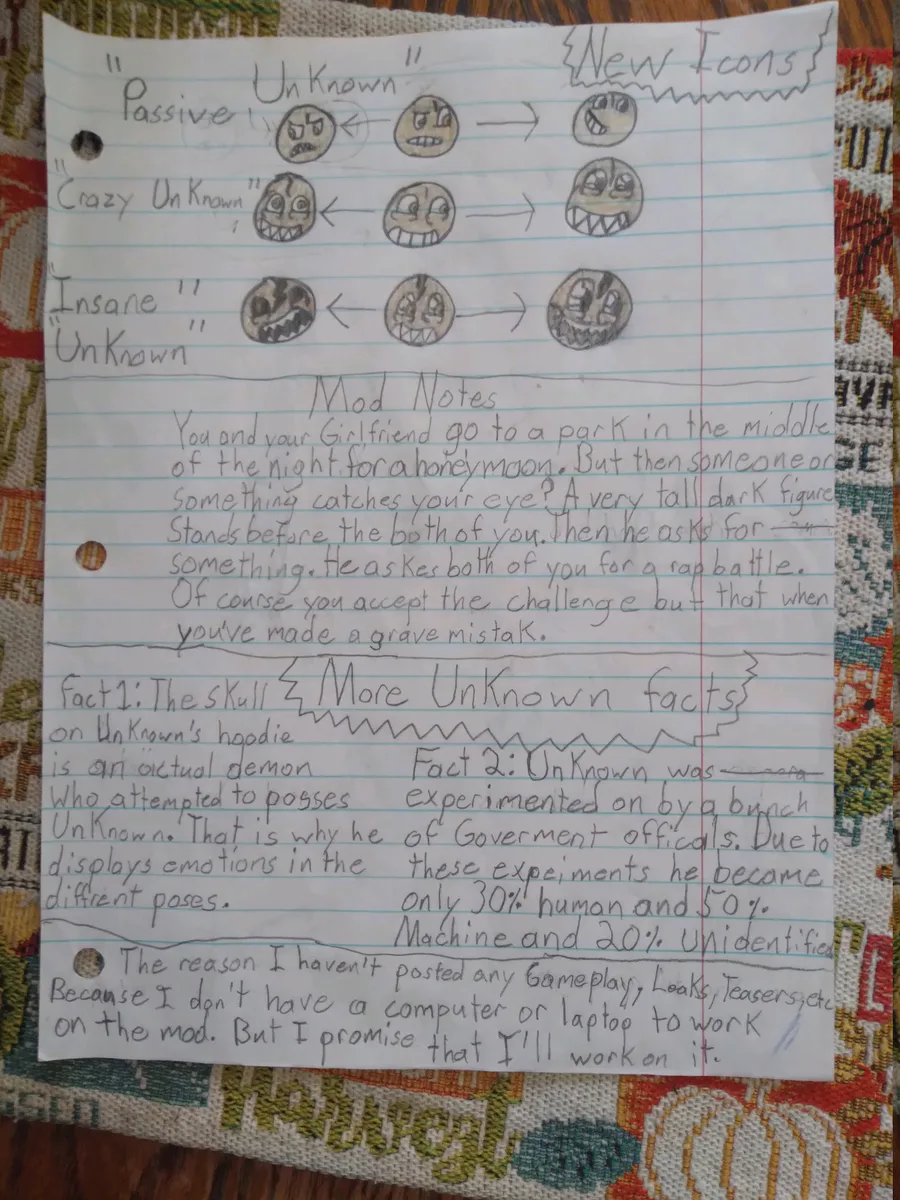 "Passive UnKnown"
New Icons
"Crazy UnKnown"
"Insane"
"UnKnown"
Mod Notes
You and your Girlfriend go to a park in the middle
of the night for a honeymoon. But then someone or
something catches your eye? A very tall dark figure
Stands before the both of you. Then he asks for
something. He askes both of you for a rap battle.
Of course you accept the challenge but that when
you've made a grave mistak.
More UnKnown facts
Fact 1: The skull
on UnKnown's hoodie
is an actual demon
Who attempted to posses
UnKnown. That is why he
displays emotions in the
diffrent poses.
Fact 2: UnKnown was
experimented on by a bunch
of Goverment officals. Due to
these expeiments he became
only 30% human and 50%
Machine and 20% Unidentified
The reason I haven't posted any Gameplay, Leaks, Teasers, etc
Because I don't have a computer or laptop to work
on the mod. But I promise that I'll work on it.
Harvest